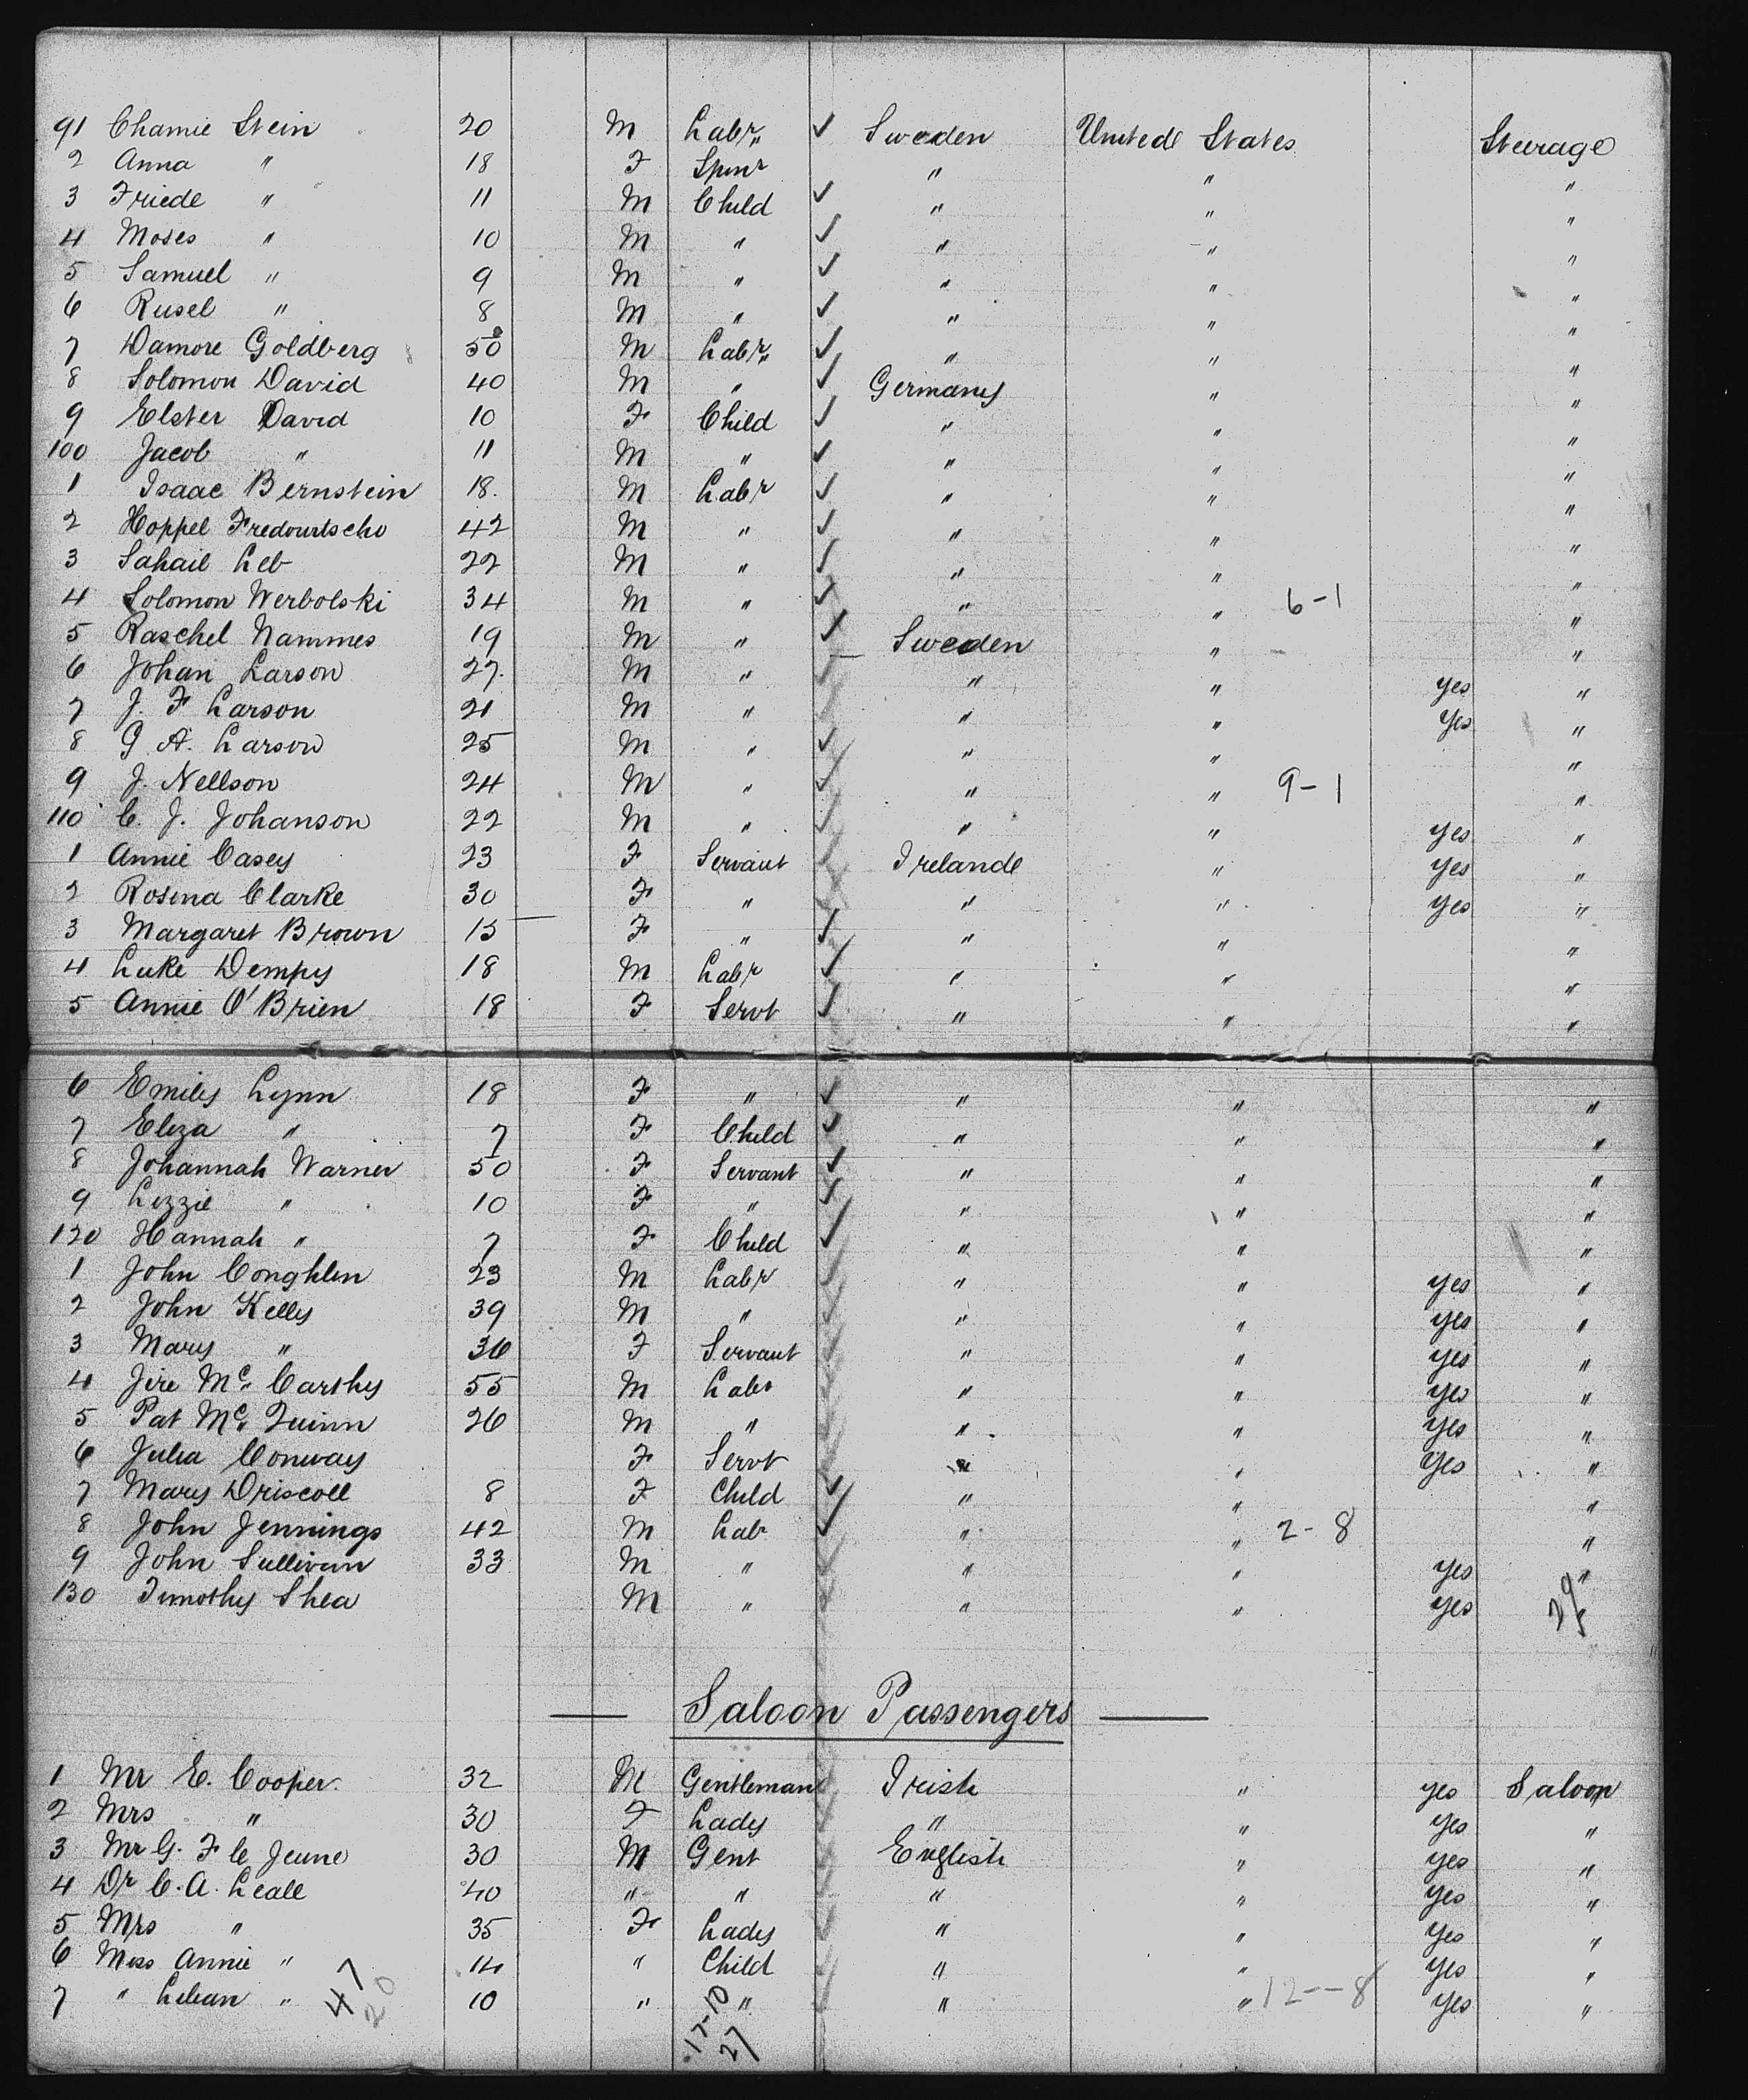 91 Chamie Stein 20 M Labr " ✓ Sweden United States Steerage
2 Anna " 18 F Spinr " " "
3 Friede " 11 M Child ✓ " " "
4 Moses " 10 M " ✓ " " "
5 Samuel " 9 M " ✓ " " "
6 Rusel " 8 M " ✓ " " "
7 Damore Goldberg 50 M Labr " ✓ " " "
8 Solomon David 40 M " ✓ Germany " "
9 Elster David 10 F Child ✓ " " "
100 Jacob " 11 M " ✓ " " "
1 Isaac Bernstein 18. M Labr ✓ " " "
2 Hoppel 42 M " ✓ " " "
3 Sahail Leb 22 M " ✓ " " "
4 Solomon Werbolski 34 M " ✓ " " 6-1 "
5 Raschel Nammes 19 M " ✓ Sweden " "
6 Johan Larson 27. M " ✓ " " yes "
7 J. F Larson 21 M " " " yes "
8 G A. Larson 25 M " ✓ " " "
9 J. Nellson 24 M " ✓ " " 9-1 "
110 C. J. Johanson 22 M " ✓ " " yes "
1 Annie Casey 23 F Servant ✓ Ireland " yes "
2 Rosena Clarke 30 F " " " yes "
3 Margaret Brown 15 F " ✓ " " "
4 Luke Dempy 18 M Labr ✓ " " "
5 Annie O'Brien 18 F Servt ✓ " " "
6 Emily Lynn 18 F " ✓ " " "
7 Eliza " 7 F Child ✓ " " "
8 Johannah Warner 50 F Servant ✓ " " "
9 Lizzie " 10 F " ✓ " " "
120 Hannah " 7 F Child ✓ " " "
1 John Coughlin 23 M Labr ✓ " " yes "
2 John Kelly 39 M " ✓ " " yes "
3 Mary " 36 F Servant " " yes "
4 Jire Mc Carthy 55 M Labr " " yes "
5 Pat Mc Quinn 26 M " " " yes "
6 Julia Conway F Servt " " yes "
7 Mary Driscoll 8 F Child ✓ " " "
8 John Jennings 42 M Lab ✓ " " 2-8 "
9 John Sullivan 33 M " " " yes "
130 Timothy Shea M " " " yes "
29
Saloon Passengers
1 Mr E. Cooper. 32 M Gentleman Irish " yes Saloon
2 Mrs " 30 F Lady " " yes "
3 Mr G. F le Jeune 30 M Gent English " yes "
4 Dr C. A. Leale 40 " " " " yes "
5 Mrs " 35 F Lady " " yes "
6 Miss Annie " 14 " Child " " yes "
7 " Lilean " 10 " " " " 12--8 yes "
47
20
17-10
27